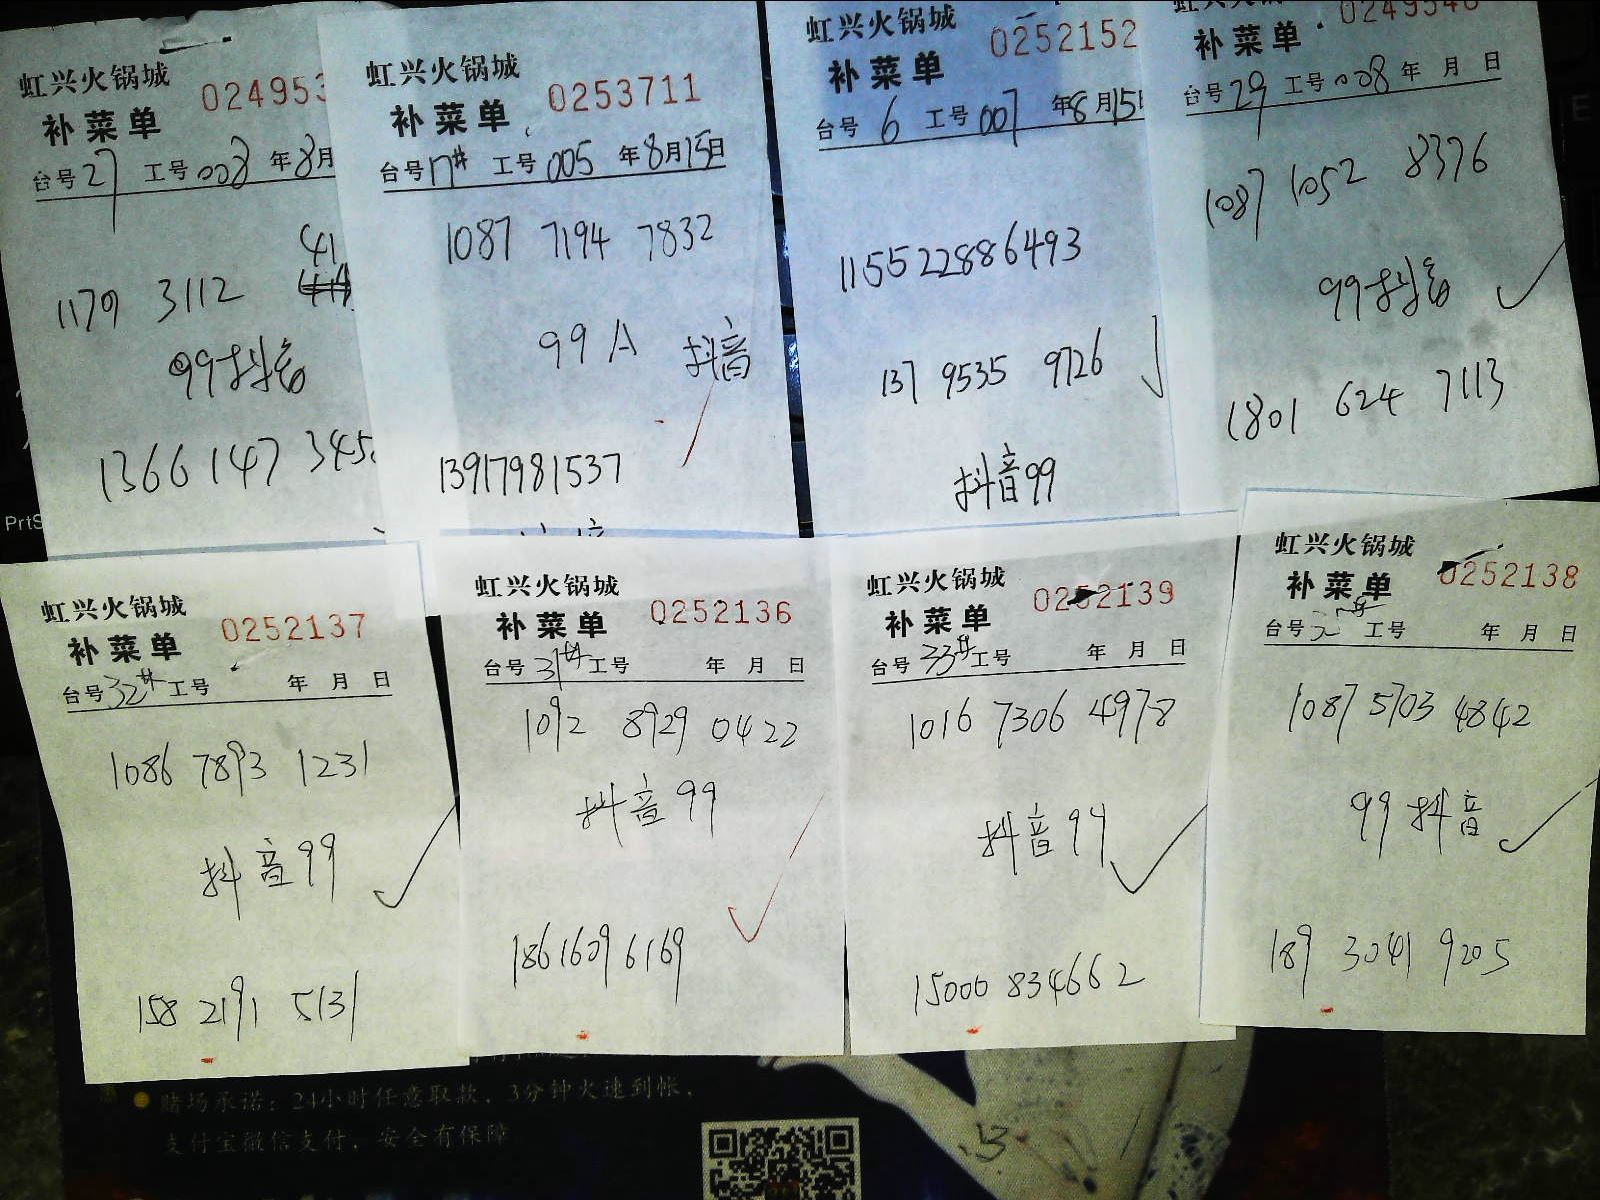 虹兴火锅城
补菜单 024953
台号 27 工号 008 年 8月
41
1179 3112
99抖音
1366 147 345
虹兴火锅城
补菜单 0253711
台号 17# 工号 005 年 8月15日
1087 7194 7832
99A 抖音
13917981537
虹兴火锅城
补菜单 0252152
台号 6 工号 007 年8月15日
115522886493
137 9535 9726
抖音99
补菜单
台号 29 工号 008 年 月 日
1087 1052 8376
99抖音
1801 624 7113
虹兴火锅城
补菜单 0252137
台号 32# 工号 年 月 日
1086 7893 1231
抖音99
158 2191 5131
虹兴火锅城
补菜单 0252136
台号 31# 工号 年 月 日
1092 8929 0422
抖音 99
186 1609 6169
虹兴火锅城
补菜单 0252139
台号 33# 工号 年 月 日
1016 7306 4978
抖音 99
15000 834662
虹兴火锅城
补菜单 0252138
台号 工号 年 月 日
1087 5703 4842
99 抖音
189 3041 9205
PrtS
赌场承诺：24小时任意取款，3分钟火速到帐，
支付宝微信支付，安全有保障